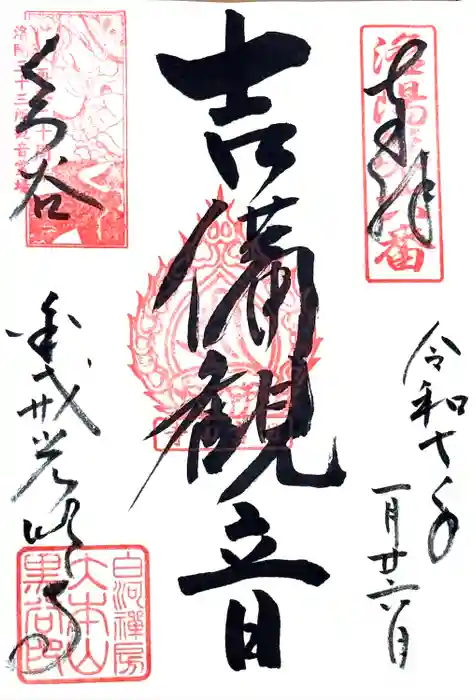 奉拝
洛陽第六番
令和七年
一月廿六日
吉備観音
洛陽三十三所観音霊場
くろ谷
金戒光明寺
白河禅房
大本山
黒谷